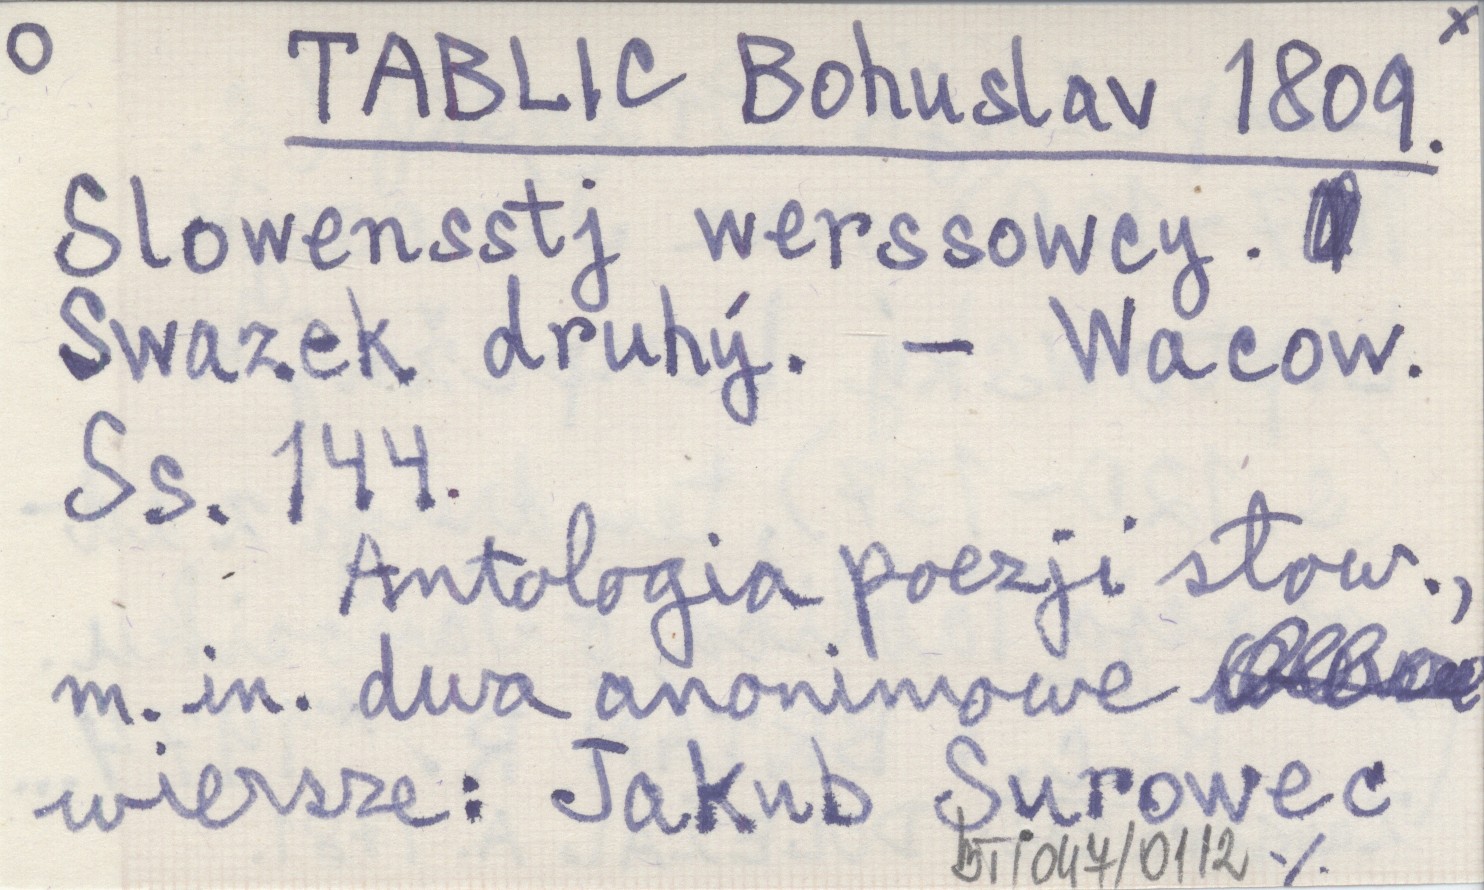 O TABLIC Bohuslav 1809. x
Slowensstj werssowcy.
Swazek druhý. – Wacow.
Ss. 144.
Antologia poezji słow.,
m. in. dwa anonimowe
wiersze: Jakub Surowec
BTi 047/0112 ./.